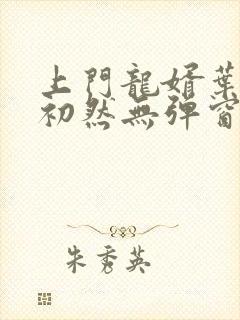 上門龍婿葉
初然無彈窗
朱秀英